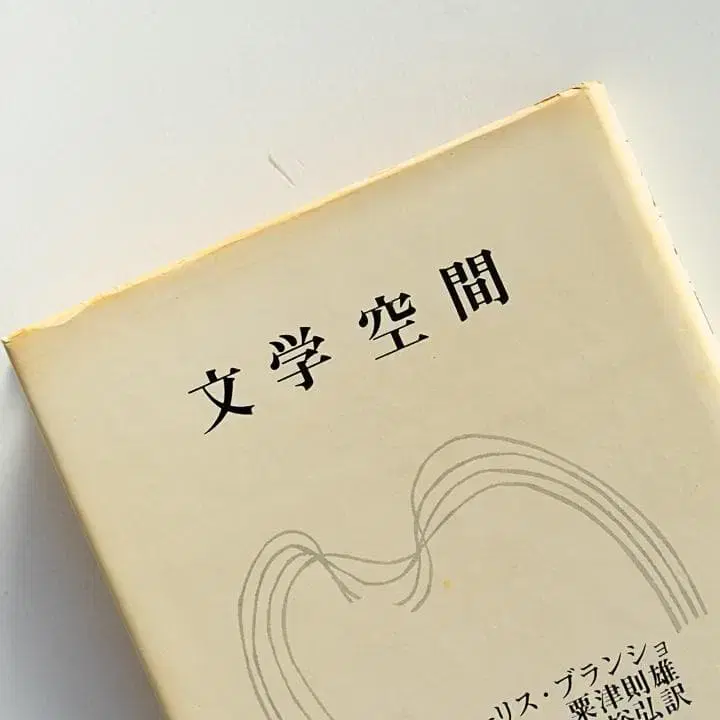 文学空間
ーリス・ブランショ
粟津則雄
裕弘訳